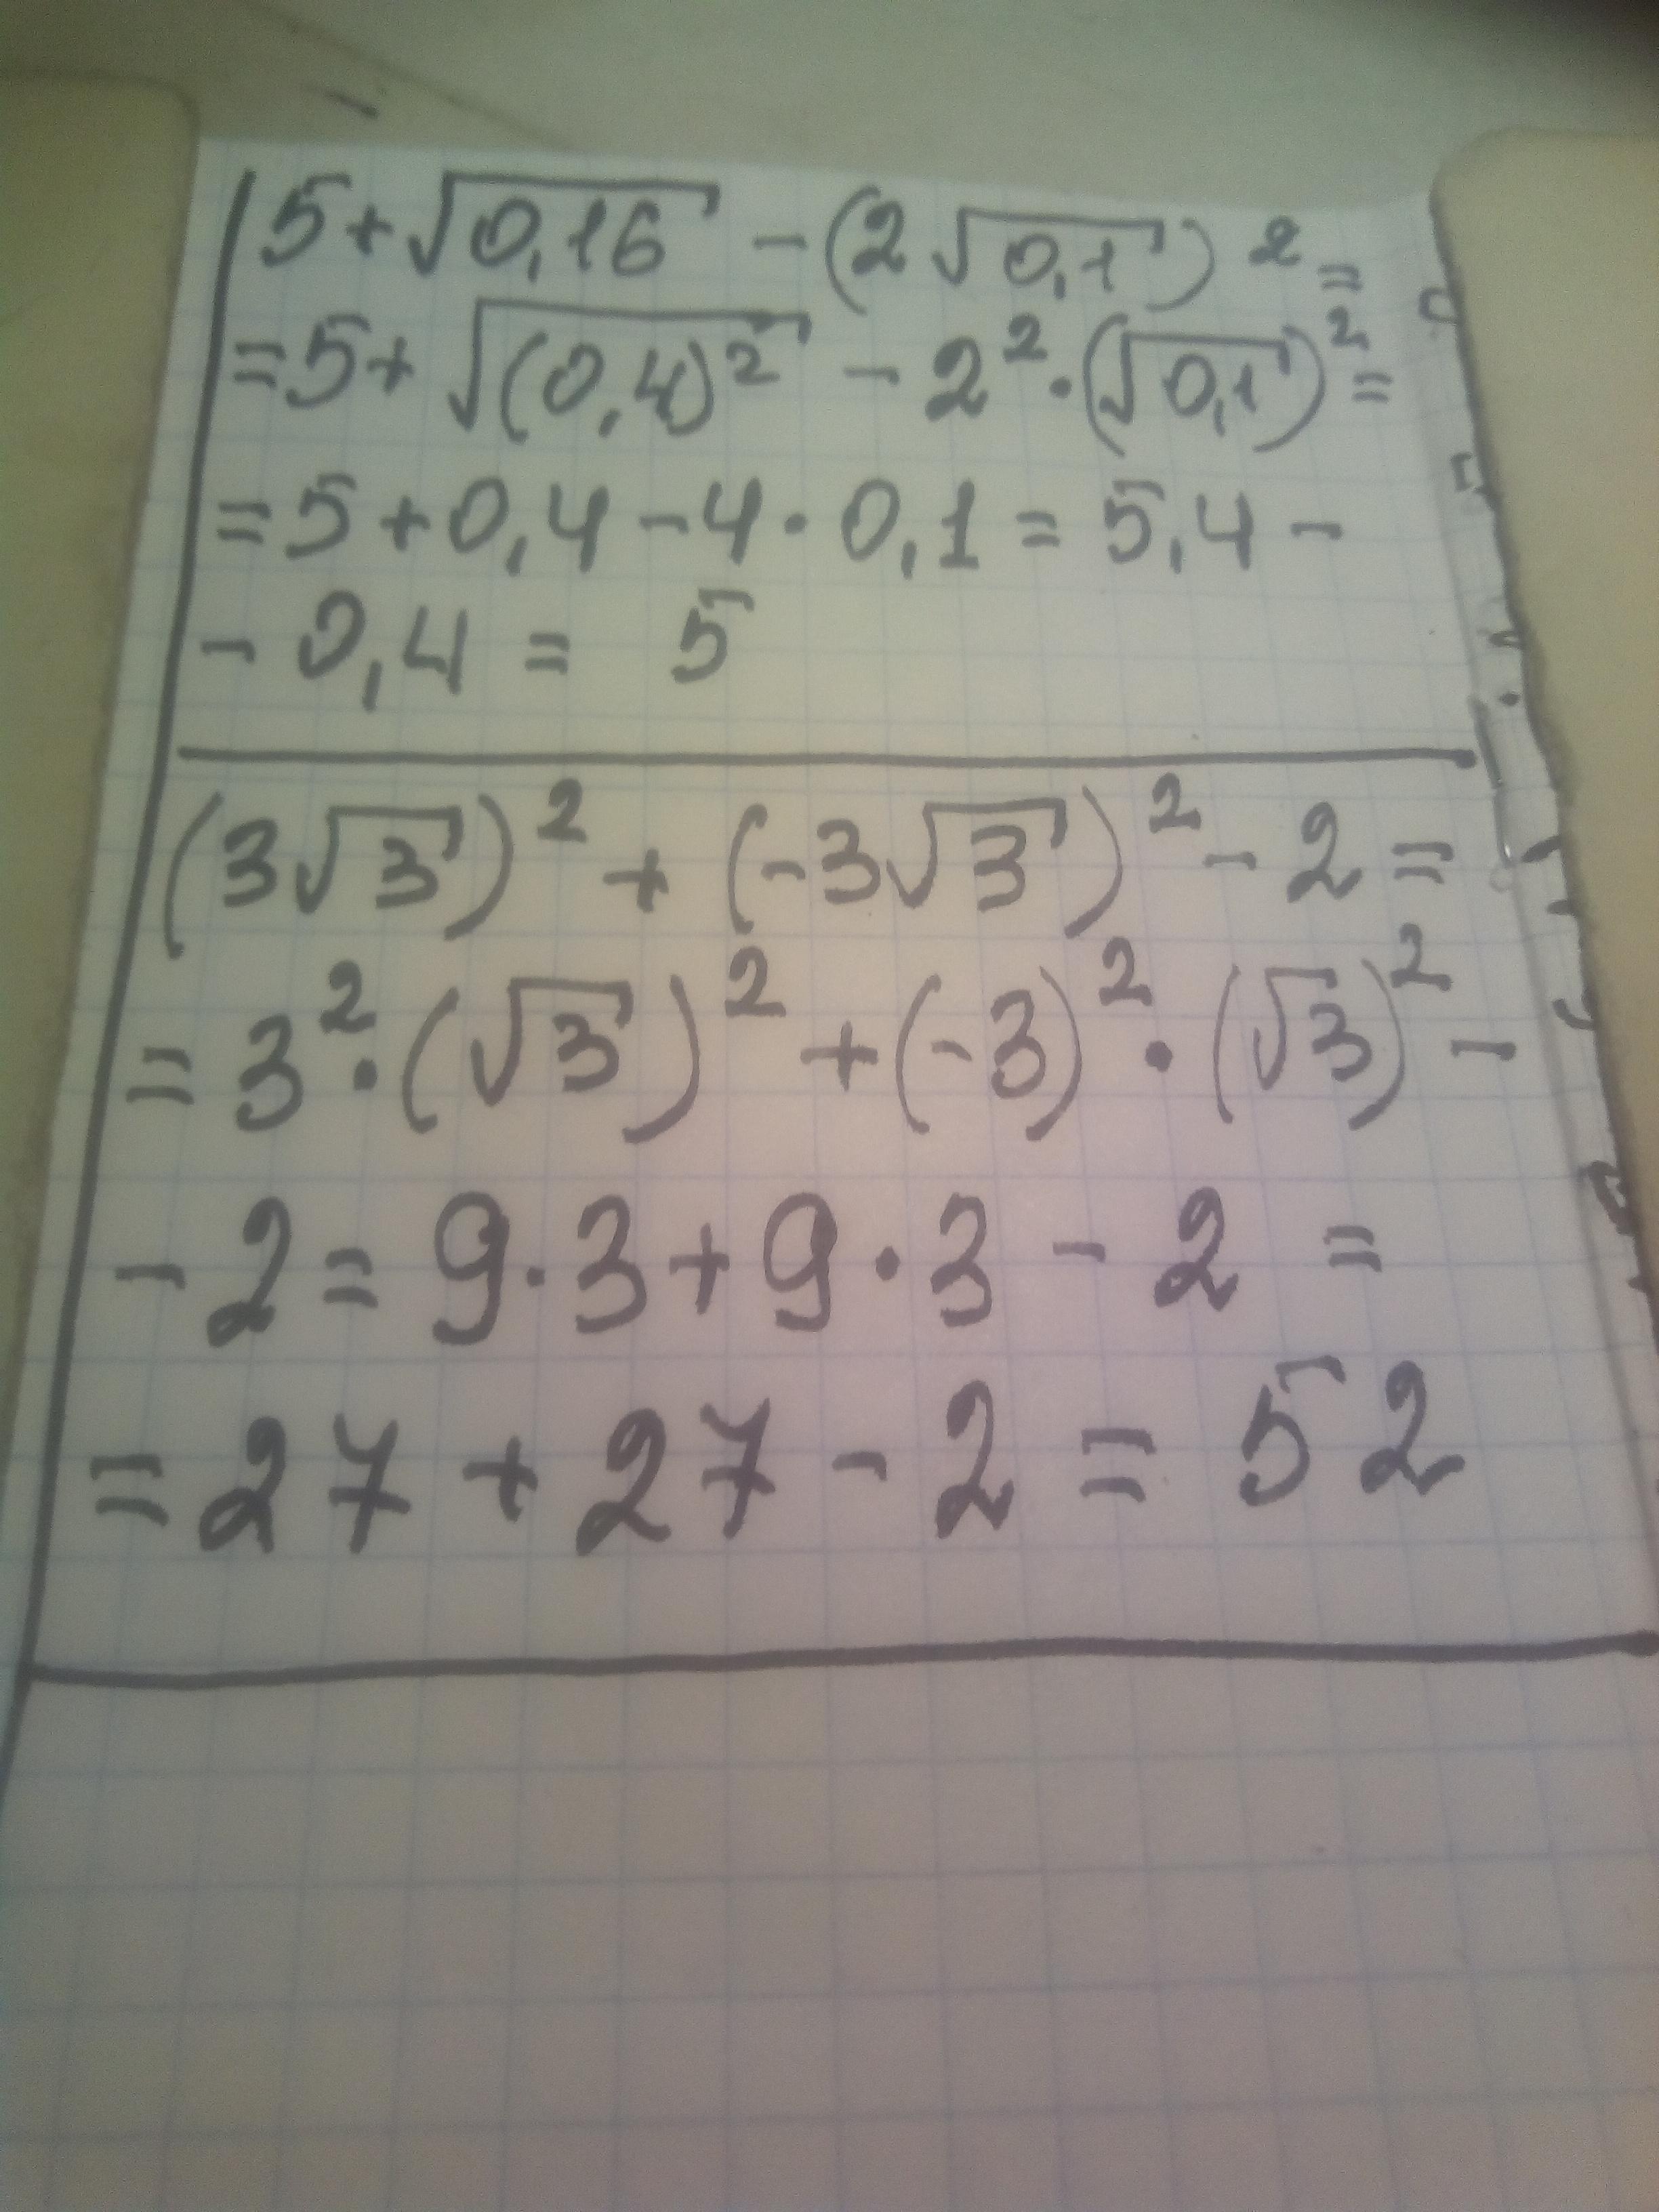 5+√0,16 -(2√0,1)²=
=5+√(0,4)² - 2²·(√0,1)²=
=5+0,4-4·0,1=5,4-
-0,4= 5
(3√3)²+(-3√3)²-2=
=3²·(√3)²+(-3)²·(√3)²-
-2=9·3+9·3-2=
=27+27-2=52